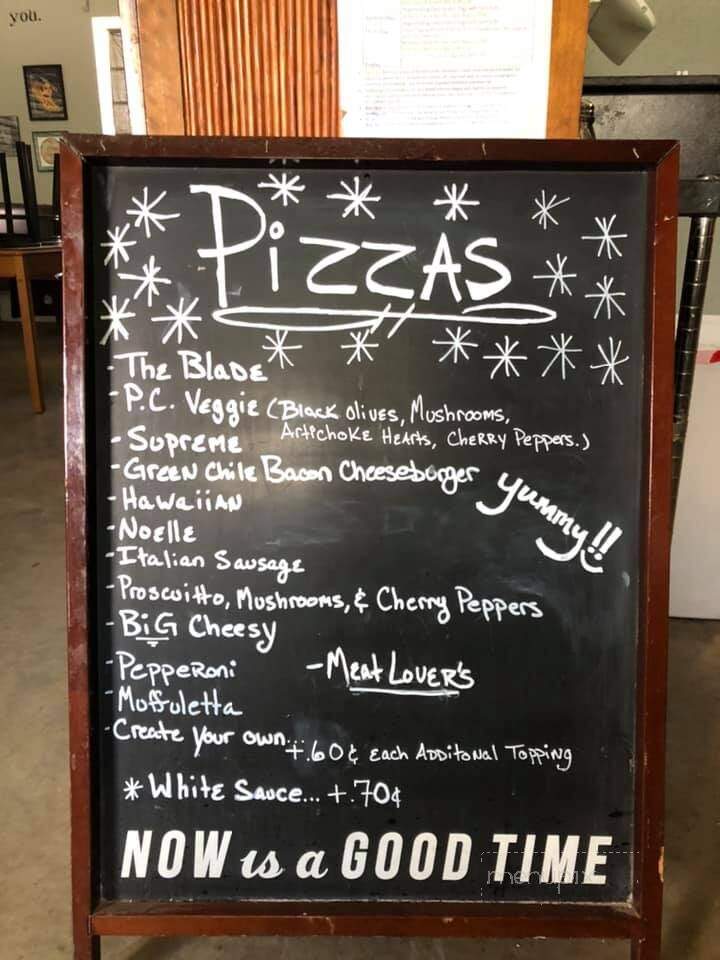 you.
Pizzas
- The Blade
- P.C. Veggie (Black olives, Mushrooms,
Artichoke Hearts, Cherry Peppers.)
- Supreme
- Green Chile Bacon Cheeseburger
yummy!!
- Hawaiian
- Noelle
- Italian Sausage
- Proscuitto, Mushrooms, & Cherry Peppers
- BiG Cheesy
- Pepperoni - Meat Lover's
- Muffuletta
- Create your own...
+.60¢ Each Additonal Topping
* White Sauce... +.70¢
NOW is a GOOD TIME
menupix